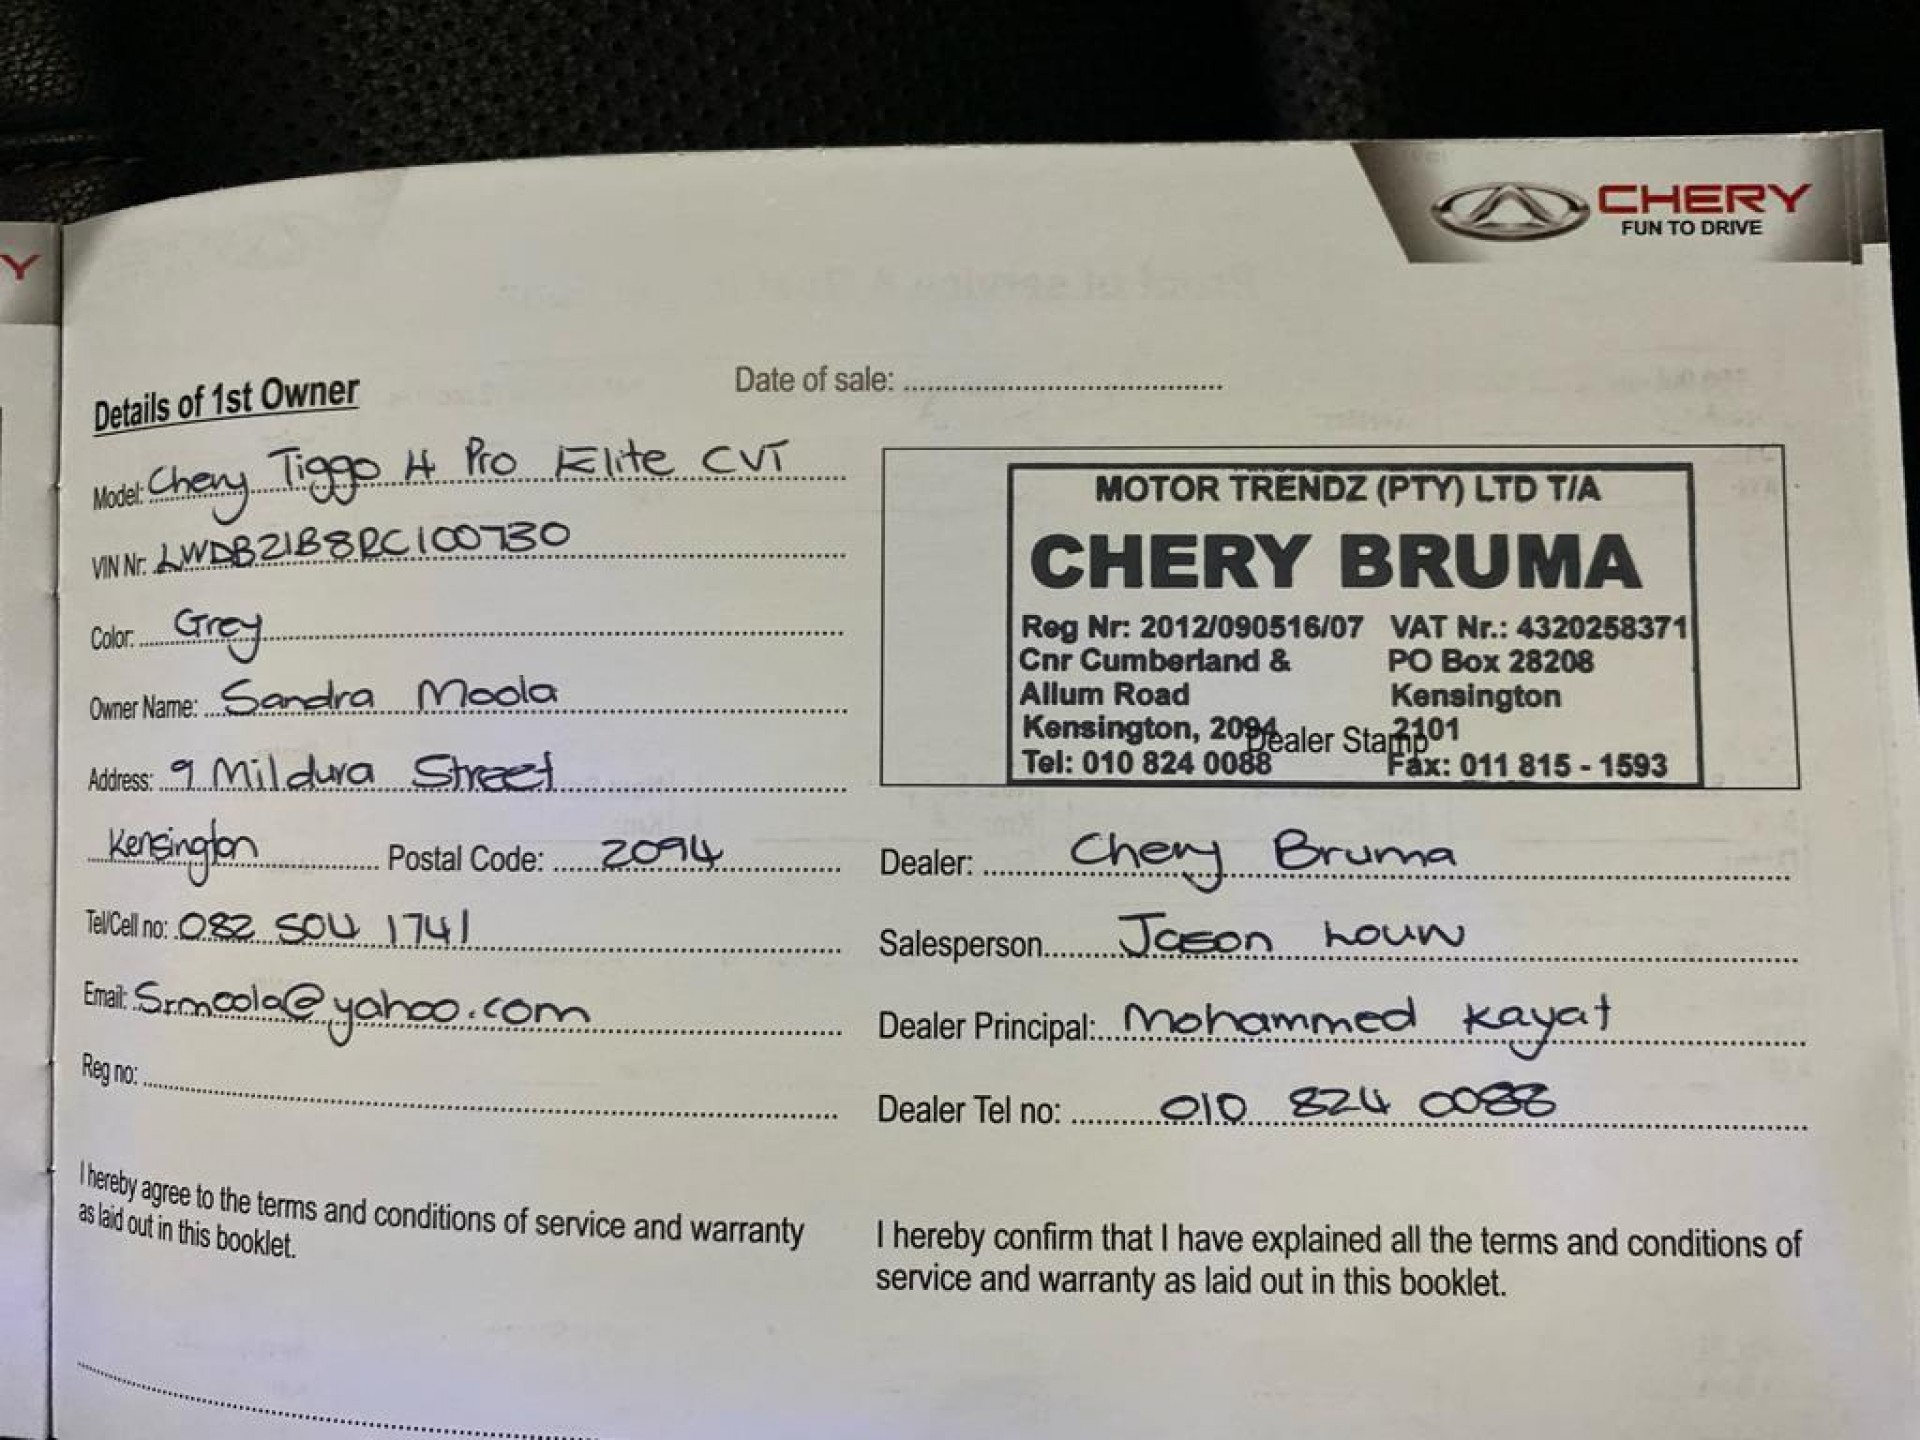 Y
CHERY
FUN TO DRIVE
Details of 1st Owner
Date of sale:
Model: Chery Tiggo 4 Pro Elite CVT
VIN Nr: LWDB21B8RC100730
Color: Grey
Owner Name: Sandra Moola
Address: 9 Mildura Street
Kensington Postal Code: 2094
Tel/Cell no: 082 504 1741
Email: Srmoola@yahoo.com
Reg no:
I hereby agree to the terms and conditions of service and warranty
as laid out in this booklet.
MOTOR TRENDZ (PTY) LTD T/A
CHERY BRUMA
Reg Nr: 2012/090516/07 VAT Nr.: 4320258371
Cnr Cumberland & PO Box 28208
Allum Road Kensington
Kensington, 2094 2101
Dealer Stamp
Tel: 010 824 0088 Fax: 011 815 - 1593
Dealer: Chery Bruma
Salesperson Jason Louw
Dealer Principal: Mohammed Kayat
Dealer Tel no: 010 824 0088
I hereby confirm that I have explained all the terms and conditions of
service and warranty as laid out in this booklet.